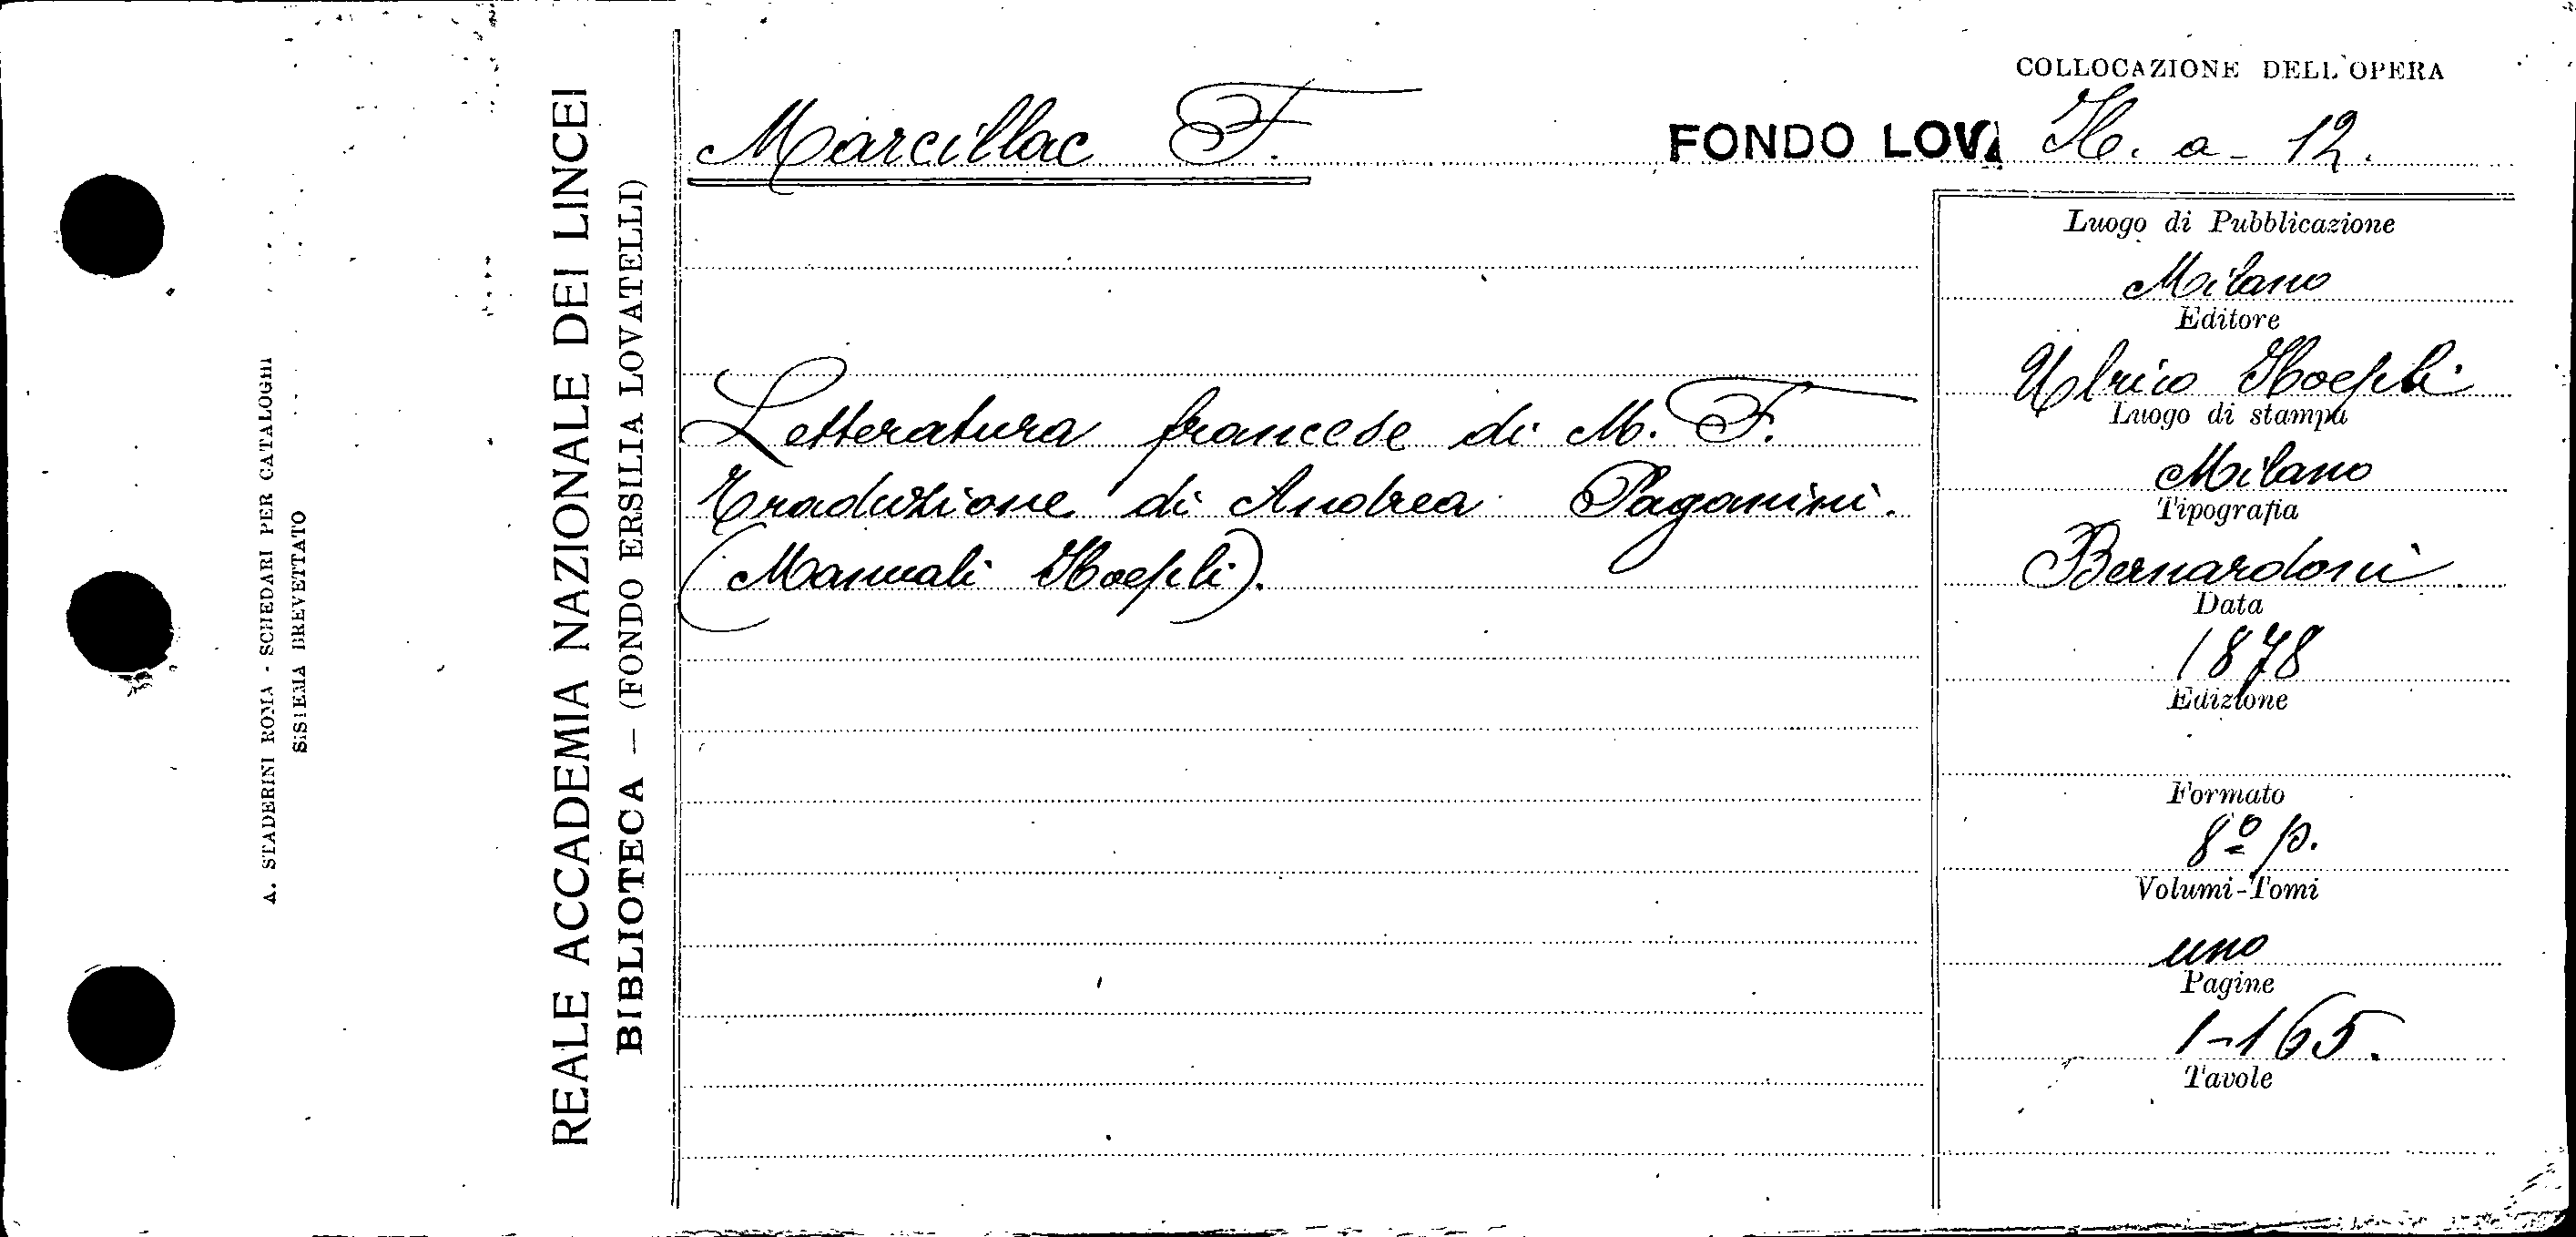 A. STADERINI ROMA - SCHEDARI PER CATALOGHI
SISTEMA BREVETTATO
REALE ACCADEMIA NAZIONALE DEI LINCEI
BIBLIOTECA — (FONDO ERSILIA LOVATELLI)
COLLOCAZIONE DELL'OPERA
Marcillac F.
FONDO LOVA H. a - 12.
Letteratura francese di M. F.
Traduzione di Andrea Paganini.
(Manuali Hoepli).
Luogo di Pubblicazione
Milano
Editore
Ulrico Hoepli
Luogo di stampa
Milano
Tipografia
Bernardoni
Data
1878
Edizione
Formato
8º p.
Volumi-Tomi
uno
Pagine
1-165.
Tavole